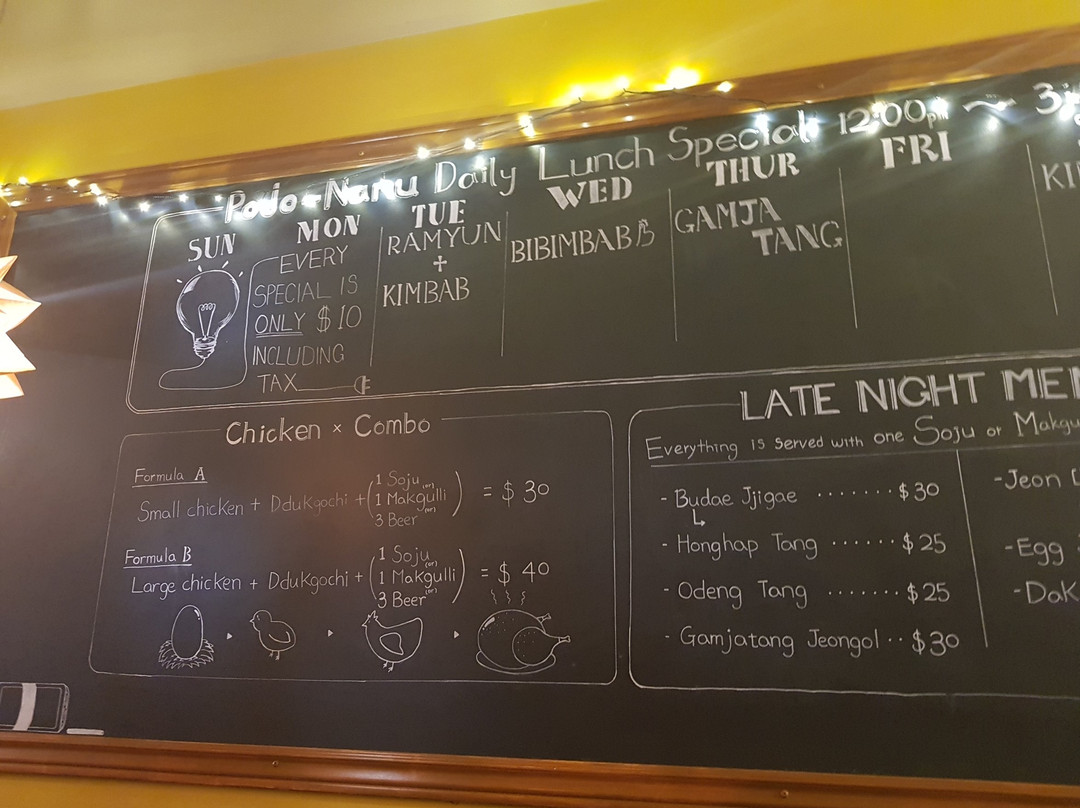 Podo-Namu Daily Lunch Special 12:00pm ~
SUN
MON
EVERY
SPECIAL IS
ONLY $10
INCLUDING
TAX
TUE
RAMYUN
+
KIMBAB
WED
BIBIMBAB
THUR
GAMJA
TANG
FRI
Chicken x Combo
Formula A
Small chicken + Ddukgochi + (1 Soju (or) 1 Makgulli (or) 3 Beer) = $30
Formula B
Large chicken + Ddukgochi + (1 Soju (or) 1 Makgulli (or) 3 Beer) = $40
LATE NIGHT
Everything is served with one Soju or
- Budae Jjigae ........ $30
- Honghap Tang ...... $25
- Odeng Tang ....... $25
- Gamjatang Jeongol .. $30
- Jeon
- Egg